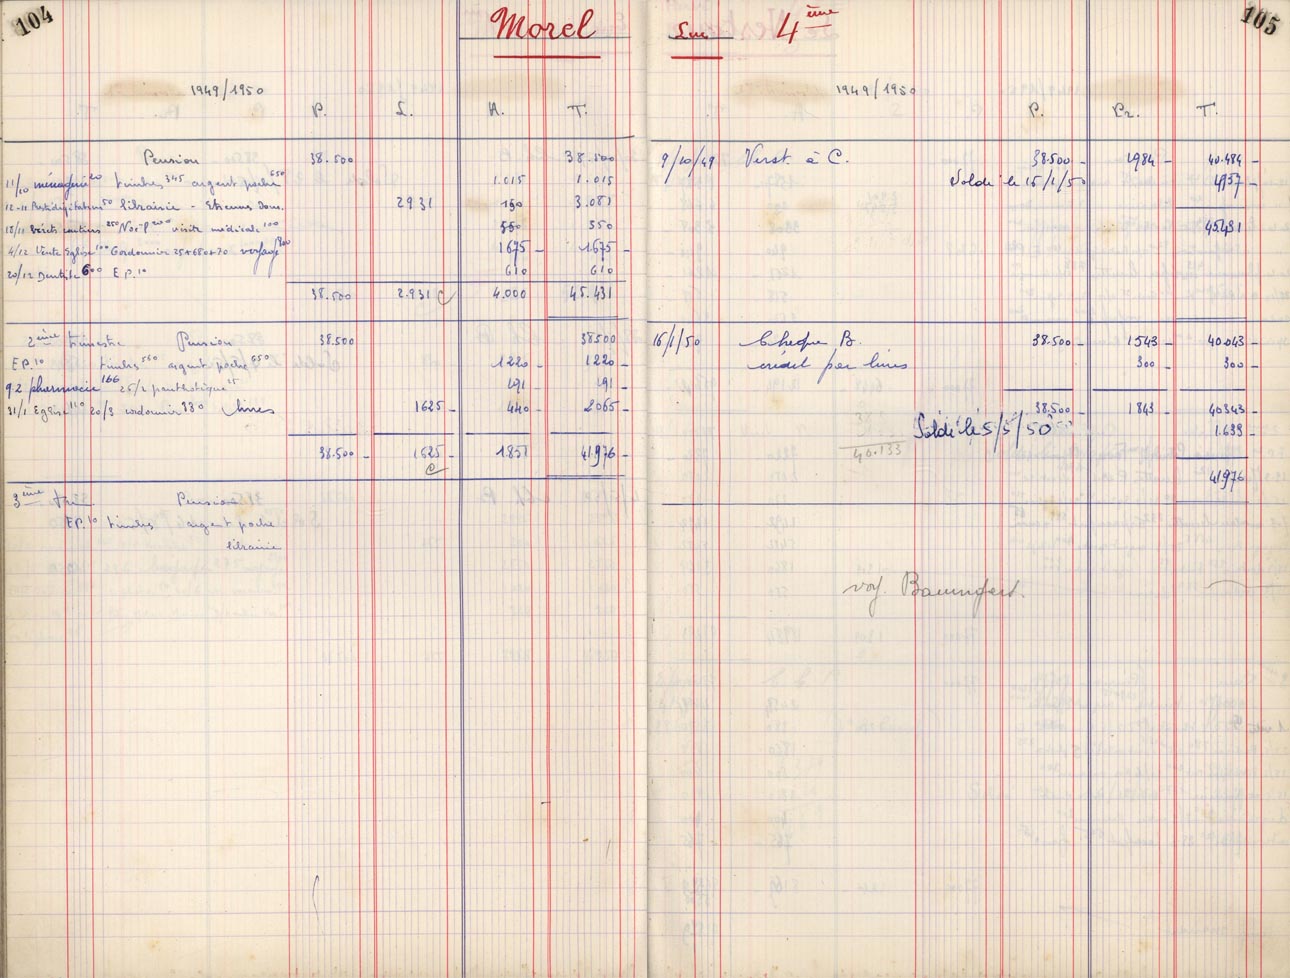 104
Morel
1949/1950
P. L. A. T.
Pension 38.500 38.500
11/10 ménagerie 20 timbres 345 argent poche 650 1.015 1.015
12-11 Prestidigitateur 50 librairie - Etienne 2931 150 3.081
18/11 250 visite médicale 100 550 550
4/12 Vente Eglise 100 Cordonnier 25+680+70 voyage 800 1675 - 1675 -
20/12 Dentiste 600 E.P. 10 610 610
38.500 2.931 4.000 45.431
2ème trimestre Pension 38.500 38500
E.P. 10 timbres 560 argent poche 650 1220 - 1220 -
9.2 pharmacie 166 26/2 panthothèque 25 191 - 191 -
31/1 Eglise 110 20/3 cordonnier 330 livres 1625 - 440 - 2065 -
38.500 - 1625 - 1851 41.976 -
3ème tri Pension
E.P. 10 timbres argent poche
librairie
105
Luc 4ème
1949/1950
P. Pr. T.
9/10/49 Verst. à C. 38.500 - 1984 - 40.484 -
Soldé le 15/1/50 4957 -
45.431
16/1/50 Chèque B. 38.500 - 1543 - 40.043 -
crédit par livres 300 - 300 -
38.500 - 1843 - 40343 -
Soldé le 5/5/50 1.633 -
40.133
41.976 -
voy. Baumgert.